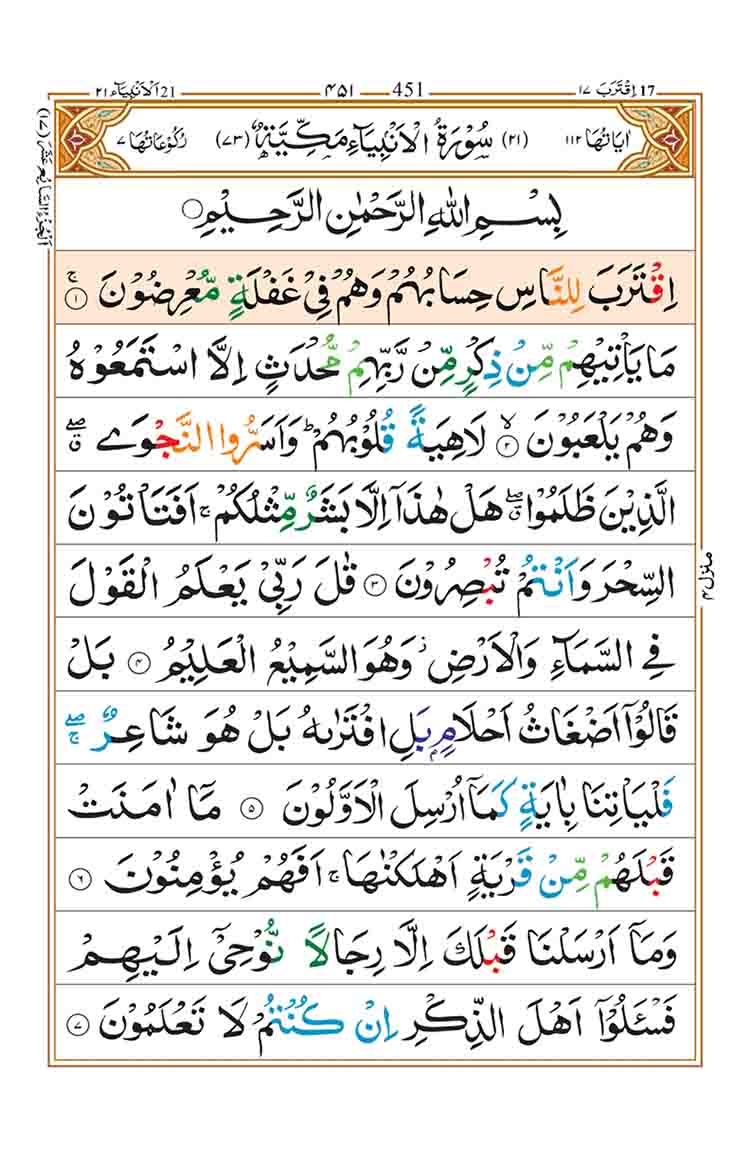 21 اَلْاَنْۢبِيَآء ٢١
٤٥١ 451
17 اِقْتَرَبَ ١٧
اٰيَاتُهَا ١١٢ (٢١) سُوْرَةُ الْاَنْۢبِيَآءِ مَكِّيَّةٌ (٧٣) رُكُوْعَاتُهَا ٧
بِسْمِ اللّٰهِ الرَّحْمٰنِ الرَّحِيْمِ ○
اِقْتَرَبَ لِلنَّاسِ حِسَابُهُمْ وَهُمْ فِيْ غَفْلَةٍ مُّعْرِضُوْنَ ۚ ﴿١﴾
مَا يَاْتِيْهِمْ مِّنْ ذِكْرٍ مِّنْ رَّبِّهِمْ مُّحْدَثٍ اِلَّا اسْتَمَعُوْهُ
وَهُمْ يَلْعَبُوْنَ ۙ ﴿٢﴾ لَاهِيَةً قُلُوْبُهُمْ ؕ وَاَسَرُّوا النَّجْوَى ۖۗ
الَّذِيْنَ ظَلَمُوْا ۖۗ هَلْ هٰذَاۤ اِلَّا بَشَرٌ مِّثْلُكُمْ ۚ اَفَتَاْتُوْنَ
السِّحْرَ وَاَنْتُمْ تُبْصِرُوْنَ ﴿٣﴾ قٰلَ رَبِّيْ يَعْلَمُ الْقَوْلَ
فِي السَّمَآءِ وَالْاَرْضِ ؗ وَهُوَ السَّمِيْعُ الْعَلِيْمُ ﴿٤﴾ بَلْ
قَالُوْۤا اَضْغَاثُ اَحْلَامٍۭ بَلِ افْتَرٰىهُ بَلْ هُوَ شَاعِرٌ ۖۚ
فَلْيَاْتِنَا بِاٰيَةٍ كَمَاۤ اُرْسِلَ الْاَوَّلُوْنَ ﴿٥﴾ مَاۤ اٰمَنَتْ
قَبْلَهُمْ مِّنْ قَرْيَةٍ اَهْلَكْنٰهَا ۚ اَفَهُمْ يُؤْمِنُوْنَ ﴿٦﴾
وَمَاۤ اَرْسَلْنَا قَبْلَكَ اِلَّا رِجَالًا نُّوْحِيْۤ اِلَيْهِمْ
فَسْـَٔلُوْۤا اَهْلَ الذِّكْرِ اِنْ كُنْتُمْ لَا تَعْلَمُوْنَ ﴿٧﴾
اَلْجُزْءُ السَّابِعُ عَشَرَ (١٧)
منزل ٤